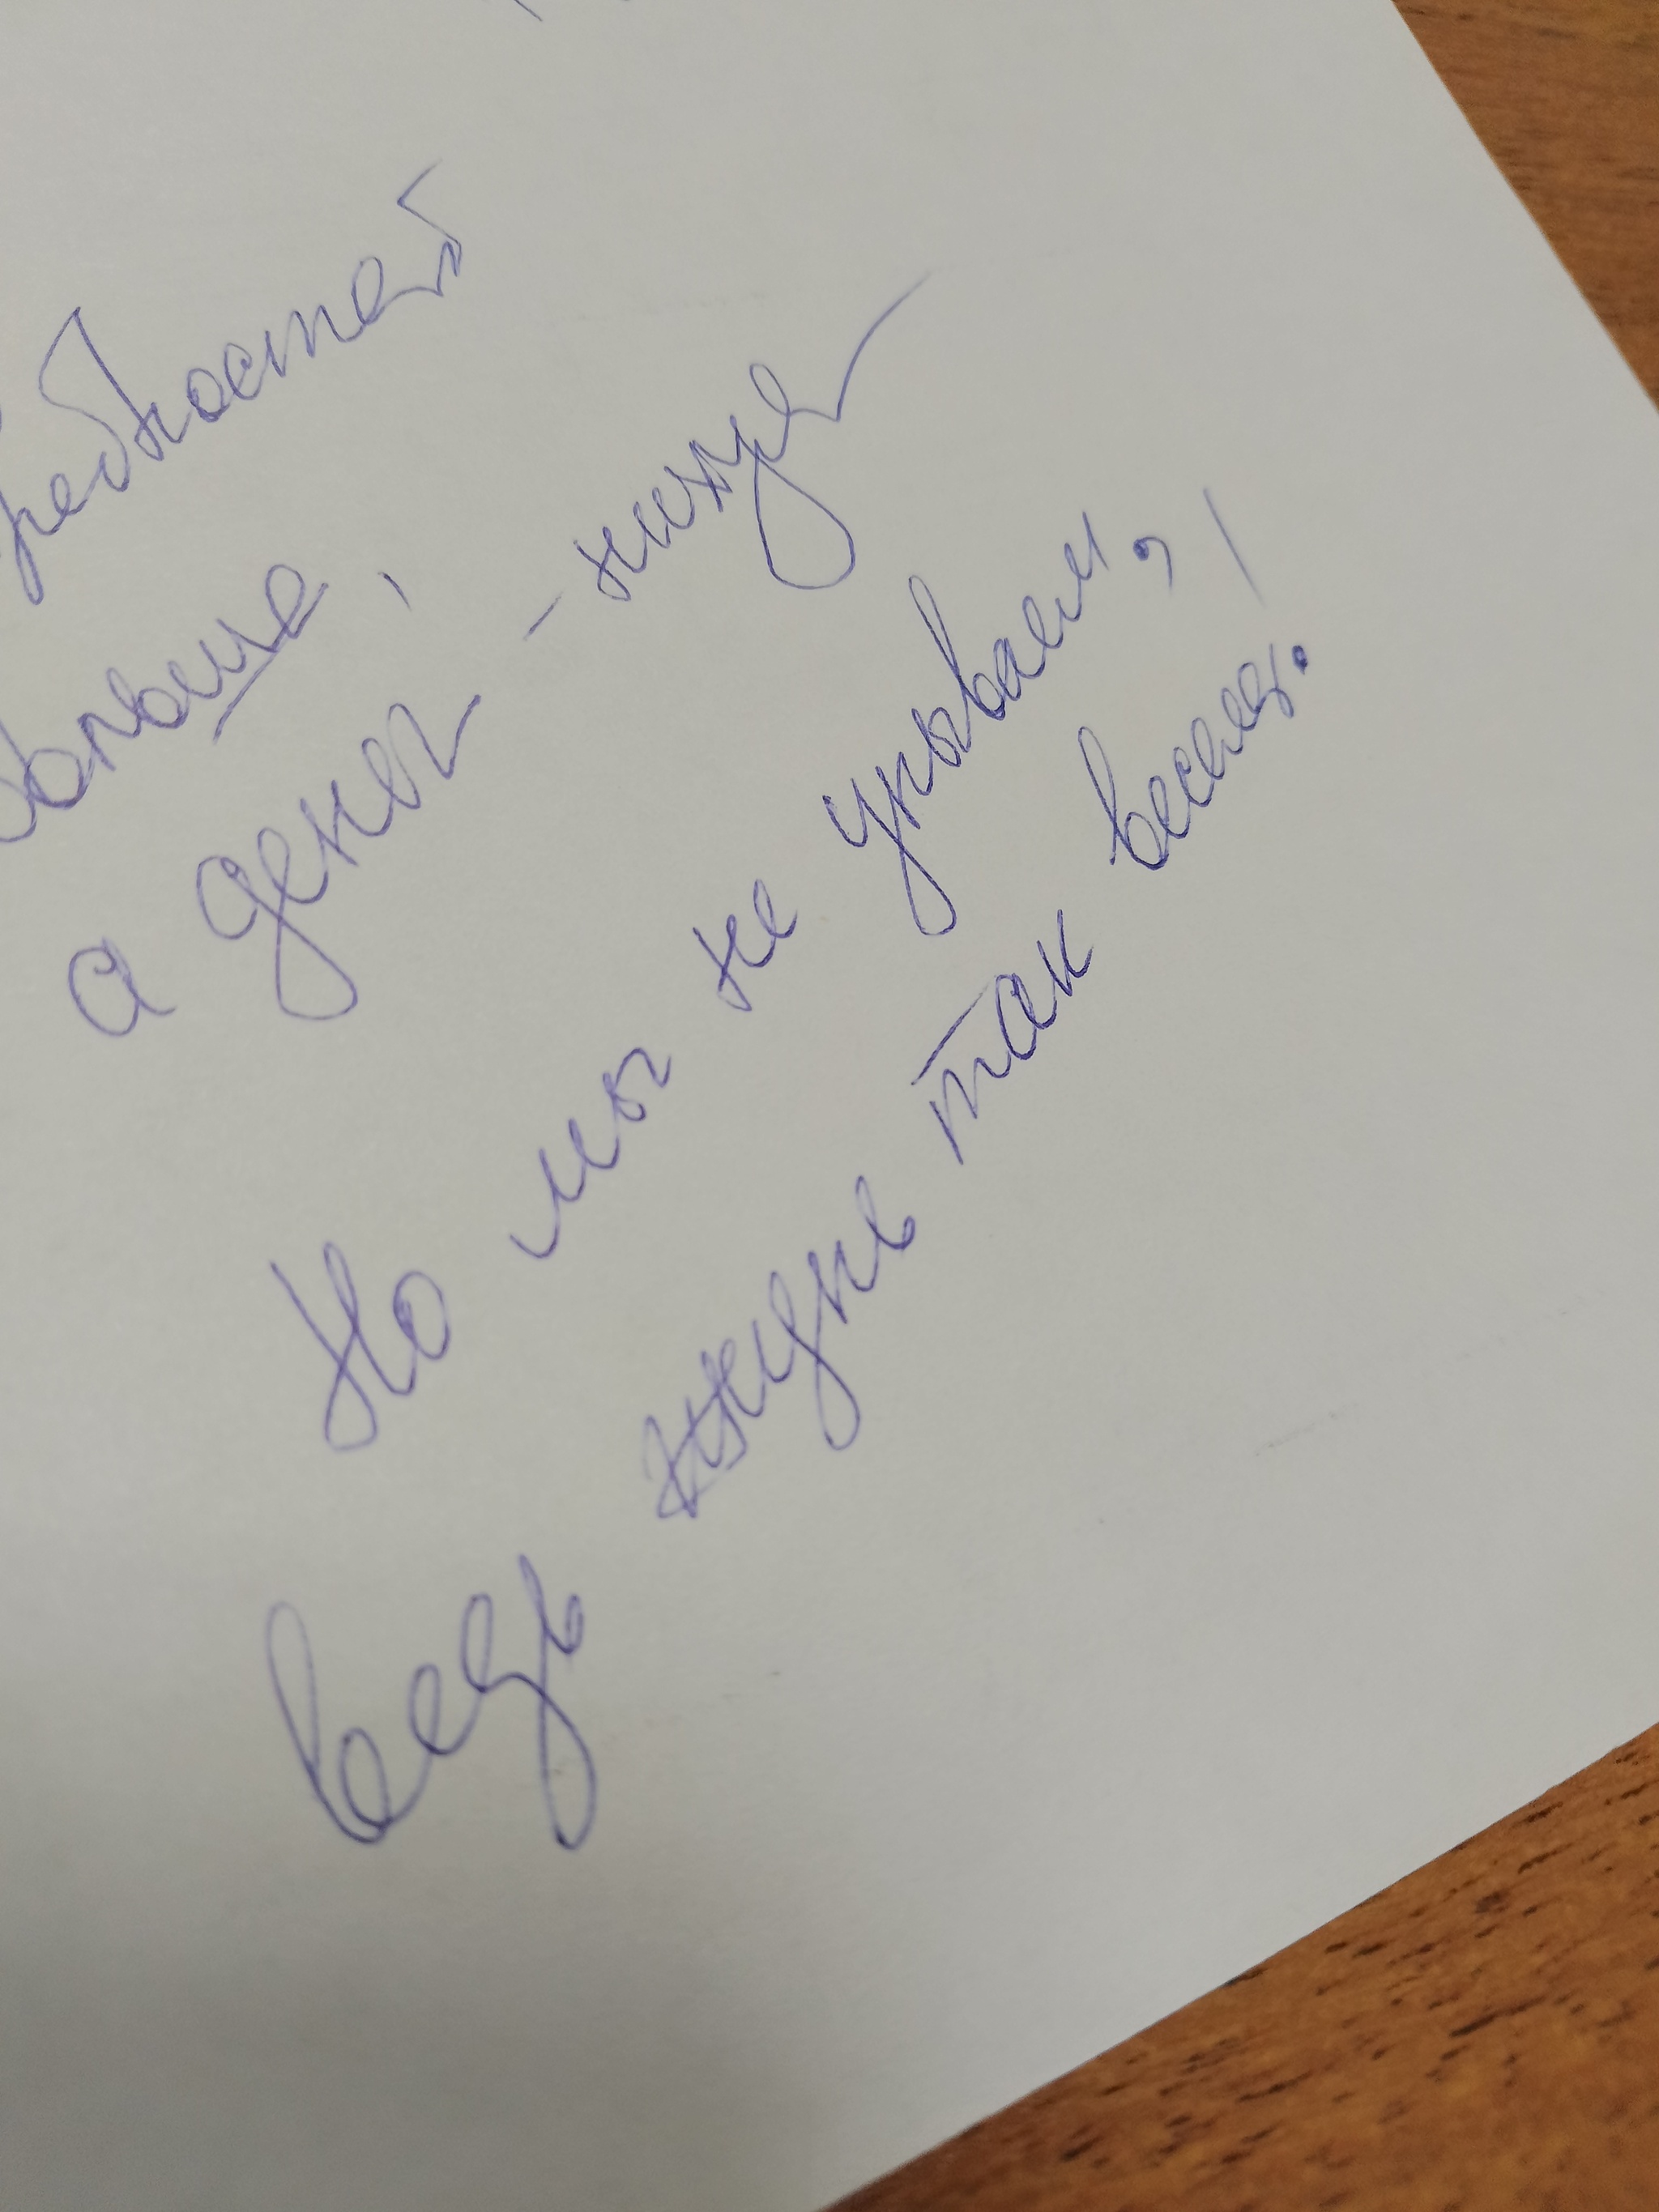 ребностей
больше,
а денег - нихуя
Но мы не унываем,
ведь жизнь так весела!